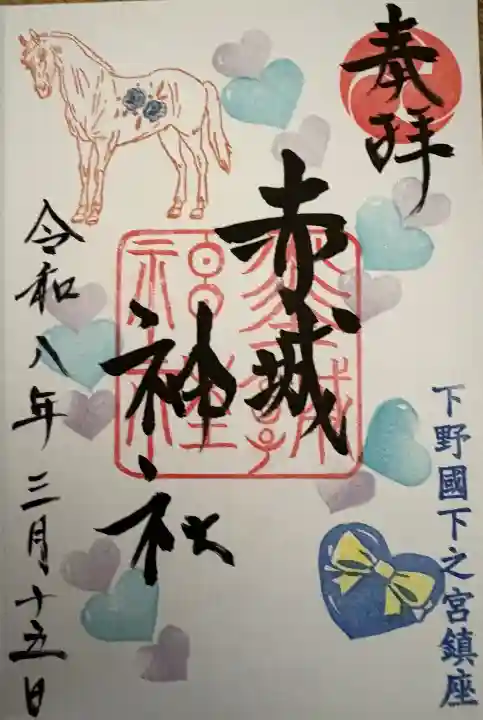 奉拝
下野國下之宮鎮座
赤城
神社
令和八年三月十五日